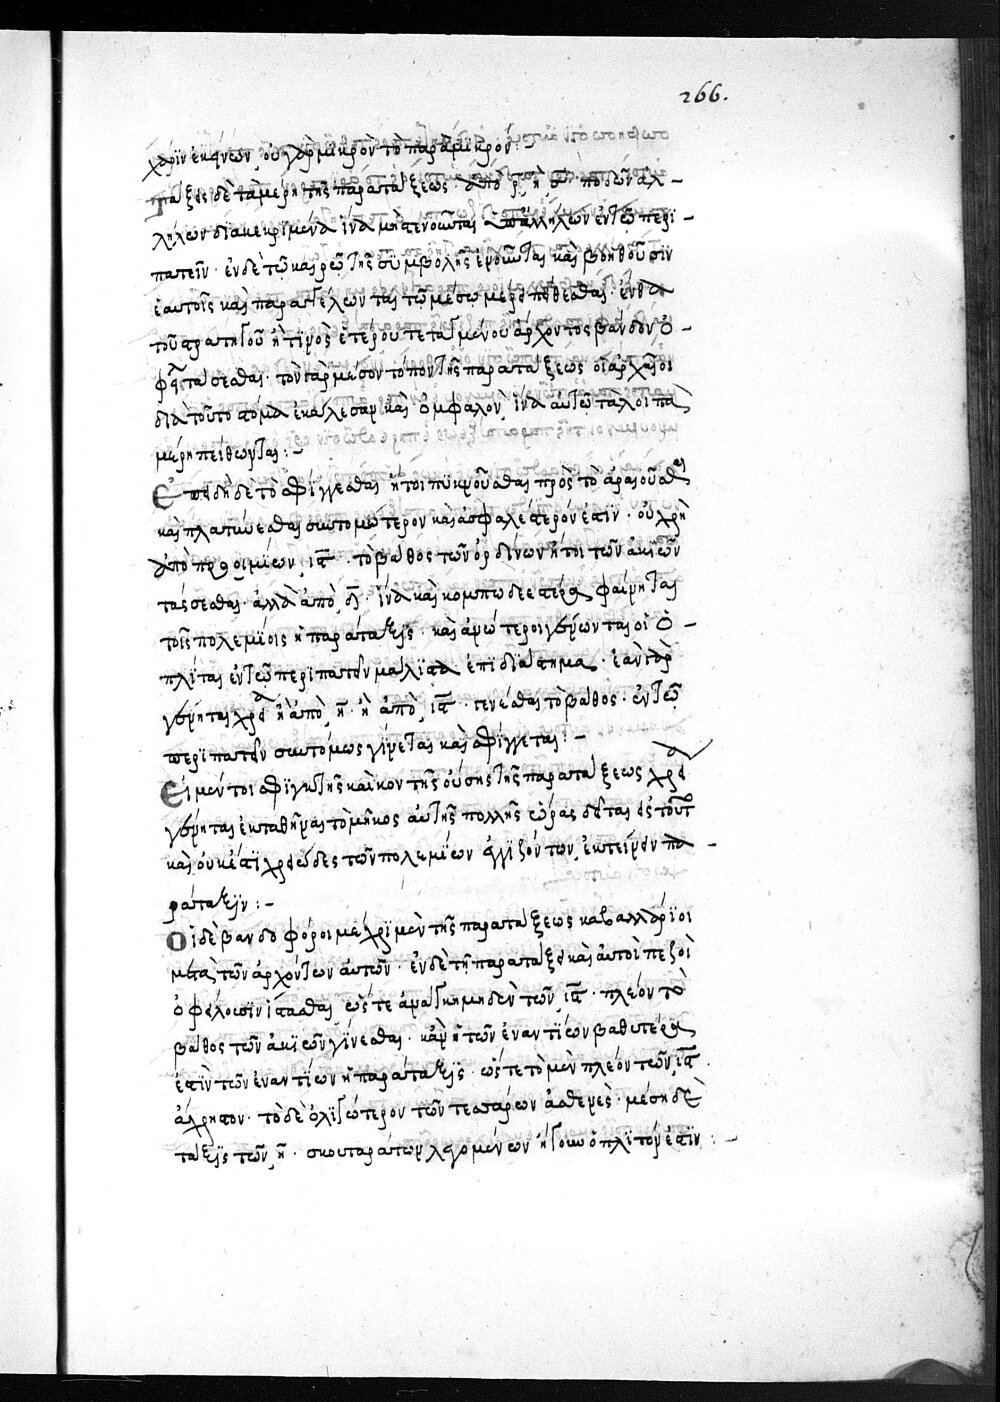 266.
χάριν ἐκείνων, οὐ γὰρ μικρὸν τὸ παρὰ μικρόν:
Τάξεις δὲ τὰ μέρη τῆς παρατάξεως. ἀπὸ ρ̅ ἢ σ̅ ποδῶν ἀλ-
λήλων διακεκριμένα ἵνα μὴ στενοῦνται ὑπαλλήλων ἐν τῷ περι-
πατεῖν. ἐν δὲ τῷ καιρῷ τῆς συμβολῆς ἑνοῦνται καὶ βοηθοῦσιν
ἑαυτοῖς καὶ παραγγέλων τας τῷ μέσῳ μέρει πείθεσθαι. ἔνθα
τοῦ στρατηγοῦ ἤ τινος ἑτέρου τεταγμένου ἄρχοντος βάνδον ὀ-
φείλει τάσσεσθαι. τὸν γὰρ μέσον τόπον τῆς παρατάξεως οἱ ἀρχαῖοι
διὰ τοῦτο στόμα ἐκάλεσαν καὶ ὀμφαλὸν, ἵνα αὐτῷ τὰ λοιπὰ
μέρη πείθωνται:-
Ἐπειδὴ δὲ τὸ σφίγγεσθαι ἤτοι πυκνοῦσθαι πρὸς τὸ ἀραιοῦσθαι
καὶ πλατύνεσθαι συντομώτερον καὶ ἀσφαλέστερόν ἐστιν. οὐ χρὴ
ἀπὸ προοιμίων, ις̅. τὸ βάθος τῶν ὀρδίνων ἤτοι τῶν ἀκιῶν
τάσσεσθαι. ἀλλὰ ἀπὸ, δ̅. ἵνα καὶ κομπωδεστέρα φαίνηται
τοῖς πολεμίοις ἡ παράταξις. καὶ ἀνώτεροι γένωνται οἱ ὁ-
πλῖται ἐν τῷ περιπατεῖν μάλιστα ἐπὶ διάστημα. ἐὰν γὰρ
γένηται χρεία ἢ ἀπὸ, η̅. ἢ ἀπὸ, ις̅. γενέσθαι τὸ βάθος. ἐν τῷ
περιπατεῖν συντόμως γίνεται καὶ σφίγγεται:-
Εἰ μέντοι σφιγκτῆς καὶ πυκνοτης οὔσης τῆς παρατάξεως χρεία
γένηται ἐκταθῆναι τὸ μῆκος αὐτῆς πολλῆς ὥρας δεῖται εἰς τοῦτο
καὶ οὐκ ἔστι χρειῶδες τῶν πολεμίων ἐγγιζόντων, ἐκτείνειν πα-
ράταξιν:-
Οἱ δὲ βανδοφόροι μέχρι μὲν τῆς παρατάξεως καβαλλάριοι
μετὰ τῶν ἀρχόντων αὐτῶν. ἐν δὲ τῇ παρατάξει καὶ αὐτοὶ πεζοὶ
ὀφείλουσιν ἵστασθαι, ὥστε ἀναγκη μηδὲν τῶν, ις̅. πλέον τὸ
βάθος τῶν ἀκιῶν γίνεσθαι. κἂν ἡ τῶν ἐναντίων βαθυτέρα
ἐστὶν τῶν ἐναντίων ἡ παράταξις. ὥστε τὸ μὲν πλέον τῶν, ις̅.
ἄχρηστον. τὸ δὲ ὀλιγώτερον τῶν τεσσάρων ἀσθενές. μέση δὲ
τάξις τῶν, η̅. σκουτάτων λεγομένων ἤγουν ὁπλιτῶν ἐστιν:-